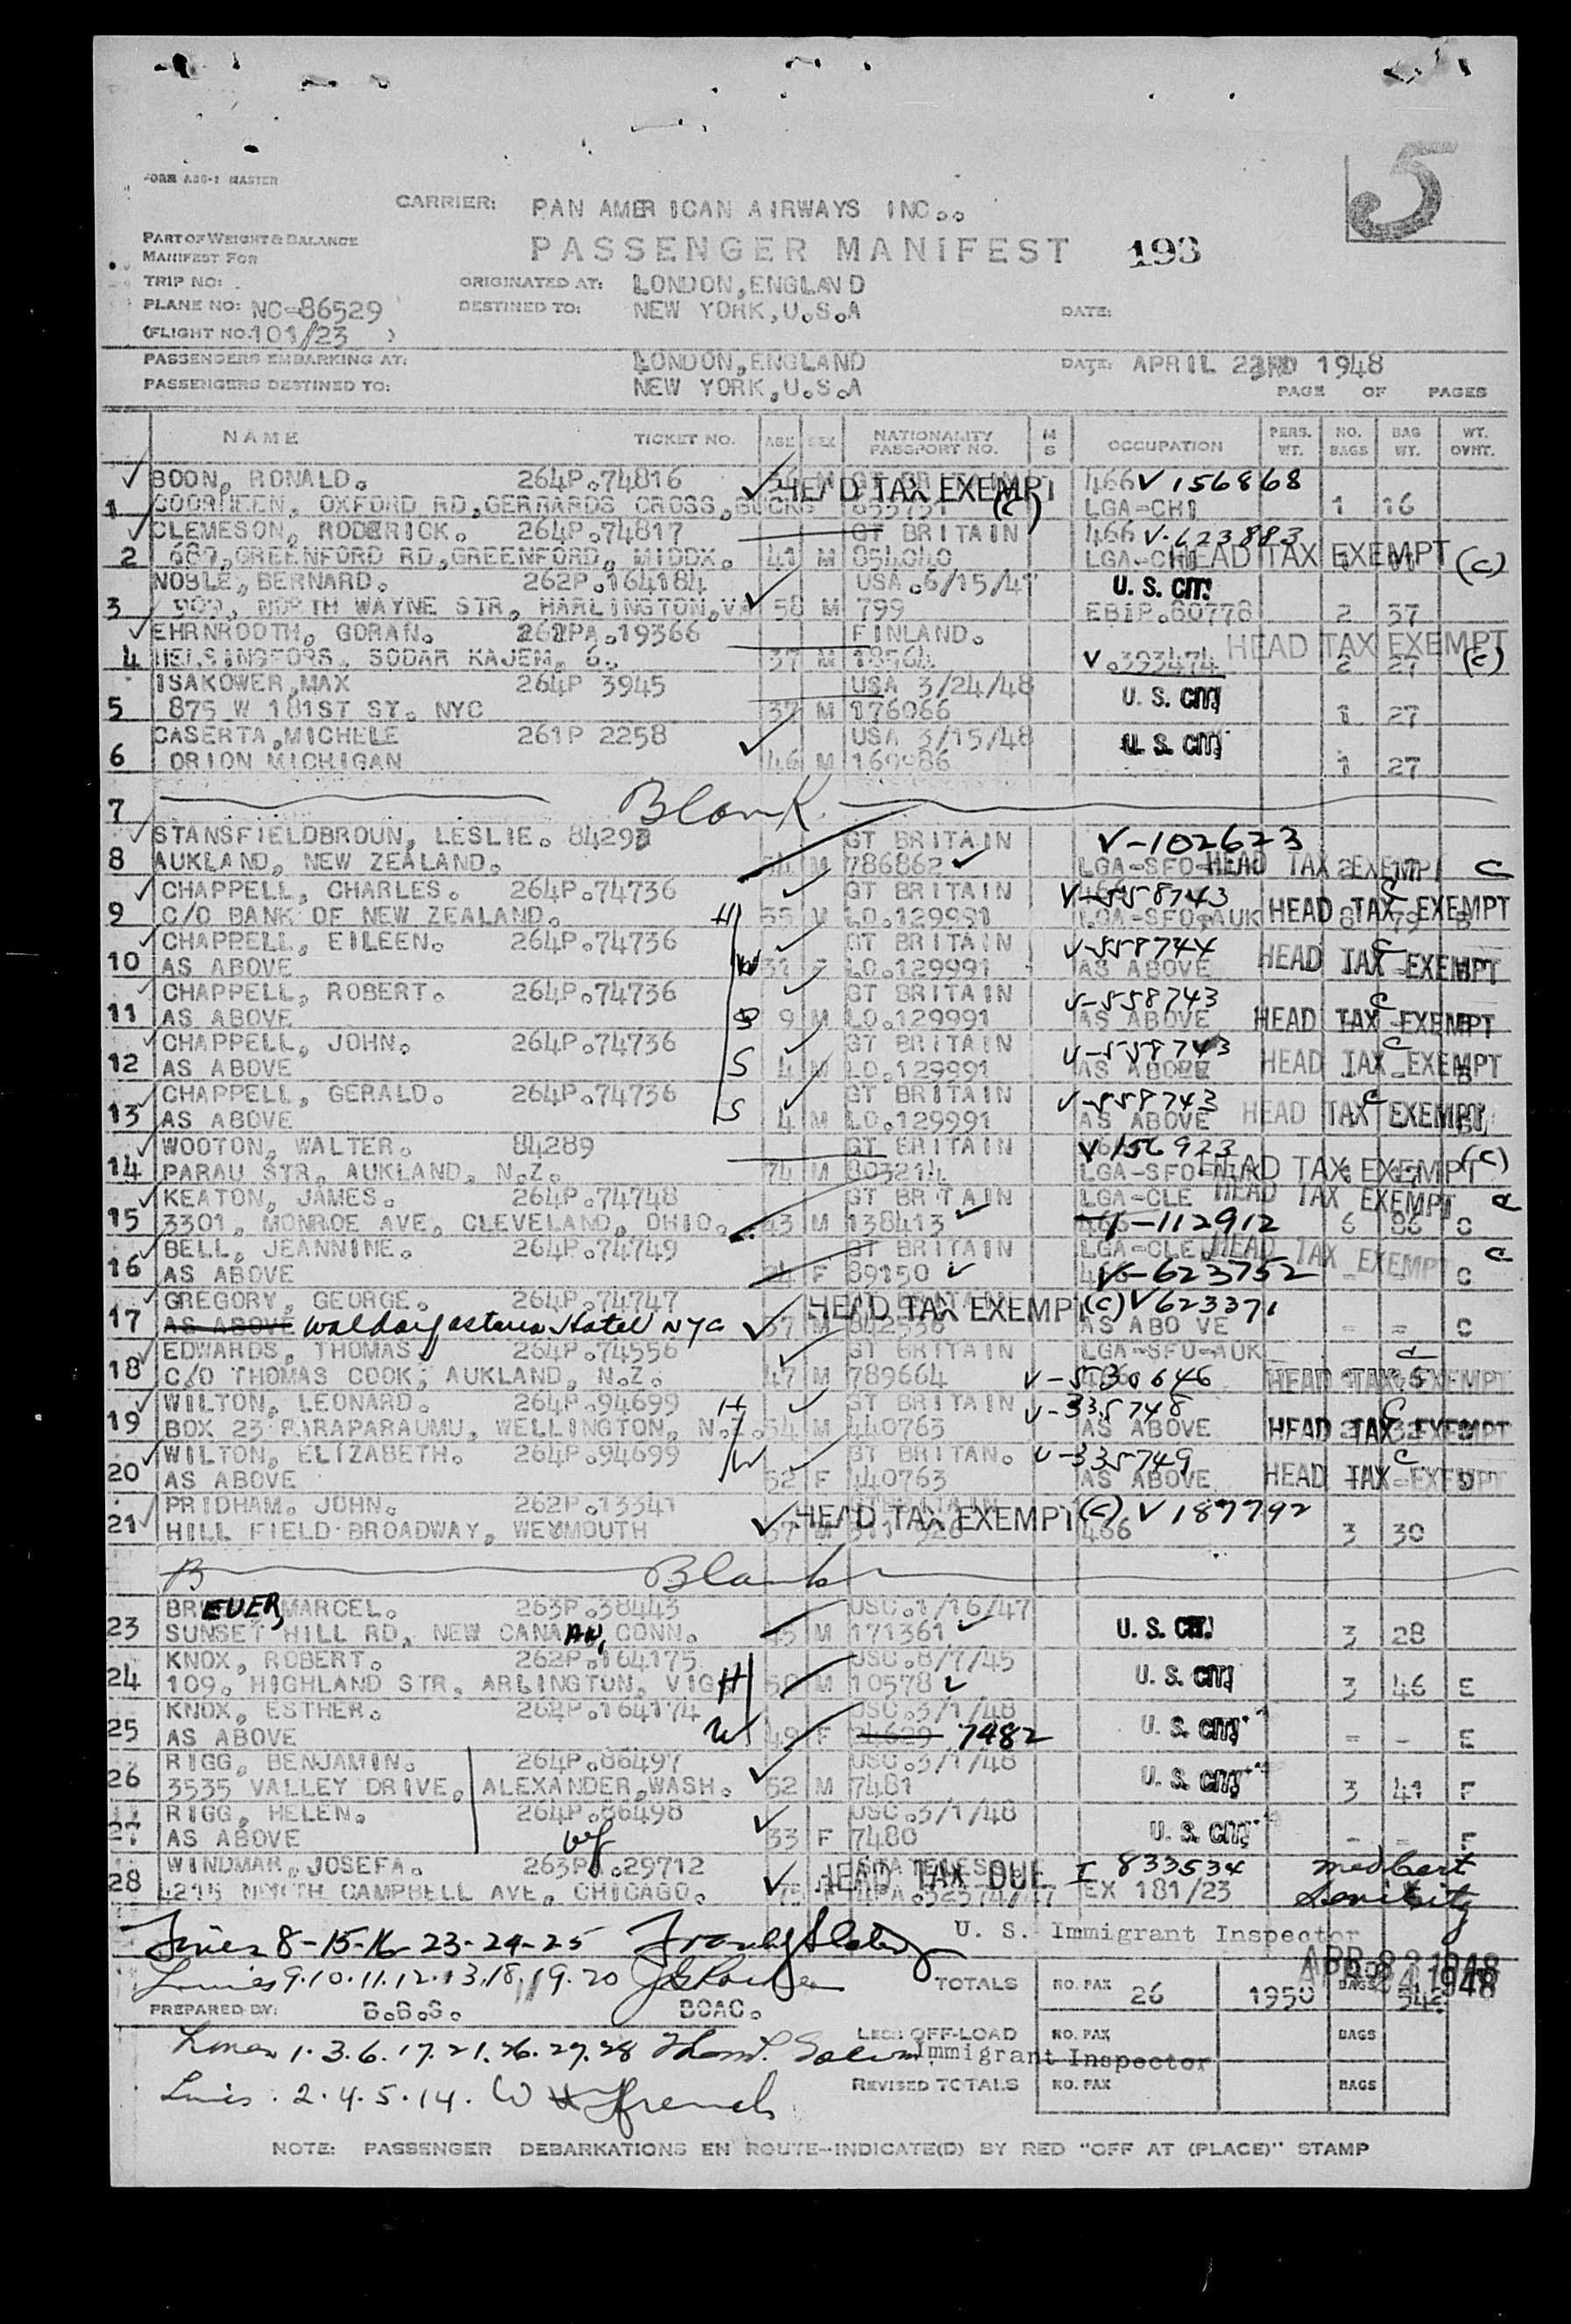 FORM A36-1 MASTER
5
CARRIER: PAN AMERICAN AIRWAYS INC..
PART OF WEIGHT & BALANCE
MANIFEST FOR
PASSENGER MANIFEST 193
TRIP NO: ORIGINATED AT: LONDON,ENGLAND
PLANE NO: NC-86529 DESTINED TO: NEW YORK,U.S.A DATE:
(FLIGHT NO. 101/23 )
PASSENGERS EMBARKING AT: LONDON,ENGLAND DATE: APRIL 23RD 1948
PASSENGERS DESTINED TO: NEW YORK,U.S.A PAGE OF PAGES
NAME TICKET NO. AGE SEX NATIONALITY PASSPORT NO. M S OCCUPATION PERS. WT. NO. BAGS BAG WT. WT. OVHT.
BOON, RONALD. 264P.74816 M GT BRITAIN 466 V 156868
HEAD TAX EXEMPT (C)
1 OXFORD RD,GERRARDS CROSS,BUCKS LGA-CHI 1 16
CLEMESON, RODERICK. 264P.74817 GT BRITAIN 466 V.623883
2 687,GREENFORD RD,GREENFORD, MIDDX. 41 M 854040 LGA-CHI HEAD TAX EXEMPT (C)
NOBLE, BERNARD. 262P.164184 USA.6/15/47 U. S. CIT.
3 909, NORTH WAYNE STR, HARLINGTON,VA 58 M 799 EBIP.60778 2 37
EHRNROOTH, GORAN. 262PA.19366 FINLAND. HEAD TAX EXEMPT
4 HELSINGFORS, SODAR KAJEM, 6. 37 M 18564 V.393474 2 27 (C)
ISAKOWER,MAX 264P 3945 USA 3/24/48 U. S. CIT.
5 875 W 181ST ST. NYC 37 M 176066 1 27
CASERTA,MICHELE 261P 2258 USA 3/15/48 U. S. CIT.
6 ORION MICHIGAN 46 M 169986 1 27
7 Blank
STANSFIELDBROUN, LESLIE. 84293 GT BRITAIN V-102623
8 AUKLAND, NEW ZEALAND. M 786862 LGA-SFO HEAD TAX EXEMPT C
CHAPPELL, CHARLES. 264P.74736 GT BRITAIN V-558743
9 C/O BANK OF NEW ZEALAND. H 55 M LO.129991 LGA-SFO-AUK HEAD TAX EXEMPT C
CHAPPELL, EILEEN. 264P.74736 GT BRITAIN V-558744
10 AS ABOVE W 31 F LO.129991 AS ABOVE HEAD TAX EXEMPT C
CHAPPELL, ROBERT. 264P.74736 GT BRITAIN V-558743
11 AS ABOVE S 9 M LO.129991 AS ABOVE HEAD TAX EXEMPT C
CHAPPELL, JOHN. 264P.74736 GT BRITAIN V-558743
12 AS ABOVE S 4 M LO.129991 AS ABOVE HEAD TAX EXEMPT C
CHAPPELL, GERALD. 264P.74736 GT BRITAIN V-558743
13 AS ABOVE S 4 M LO.129991 AS ABOVE HEAD TAX EXEMPT C
WOOTON, WALTER. 84289 GT BRITAIN V156923
14 PARAU STR, AUKLAND, N.Z. 74 M 803214 LGA-SFO HEAD TAX EXEMPT (C)
KEATON, JAMES. 264P.74748 GT BRITAIN LGA-CLE HEAD TAX EXEMPT C
15 3301, MONROE AVE, CLEVELAND, OHIO. 43 M 138413 V-112912 6 86 C
BELL, JEANNINE. 264P.74749 GT BRITAIN LGA-CLE HEAD TAX EXEMPT C
16 AS ABOVE 24 F 89150 V-623752 - - C
GREGORY, GEORGE. 264P.74747 HEAD TAX EXEMPT (C) V623371
17 AS ABOVE Waldorf astoria Hotel NYC 37 M AS ABOVE = = C
EDWARDS, THOMAS 264P.74556 GT BRITAIN LGA-SFO-AUK C
18 C/O THOMAS COOK, AUKLAND, N.Z. 47 M 789664 V-530646 HEAD TAX EXEMPT
WILTON, LEONARD. 264P.94699 H GT BRITAIN V-335748 C
19 BOX 23 PARAPARAUMU, WELLINGTON, N.Z. 54 M 440763 AS ABOVE HEAD TAX EXEMPT
WILTON, ELIZABETH. 264P.94699 W GT BRITAN. V-335749 C
20 AS ABOVE 52 F 440763 AS ABOVE HEAD TAX EXEMPT
PRIDHAM. JOHN. 262P.13341 HEAD TAX EXEMPT (C) V 187792
21 HILL FIELD BROADWAY, WEYMOUTH 57 M 466 3 30
B Blank
BREUER, MARCEL. 263P.38443 USC.1/16/47
23 SUNSET HILL RD, NEW CANAAN, CONN. 45 M 171361 U. S. CIT. 3 28
KNOX, ROBERT. 262P.164175 USC.8/7/45
24 109. HIGHLAND STR, ARLINGTON, VIG H 50 M 10578 U. S. CIT. 3 46 E
KNOX, ESTHER. 262P.164174 USC.3/1/48
25 AS ABOVE W 49 F 24629 7482 U. S. CIT. = - E
RIGG, BENJAMIN. 264P.86497 USC.3/1/48
26 3535 VALLEY DRIVE, ALEXANDER,WASH. 52 M 7481 U. S. CIT. 3 41 F
RIGG, HELEN. 264P.86498 USC.3/1/48
27 AS ABOVE 33 F 7480 U. S. CIT. - - F
WINDMAR, JOSEFA. 263P.29712 STATELESS HEAD TAX DUE I 833534 Med Cert
28 4215 NORTH CAMPBELL AVE, CHICAGO. 75 EX 181/23 Senility
Lines 8-15-16-23-24-25 U. S. Immigrant Inspector
Lines 9.10.11.12.13.18.19.20 TOTALS NO. PAX 26 1950 BAGS 542 1948
PREPARED BY: B.B.S. BOAC.
Lines 1.3.6.17.21.26.27.28 LESS OFF-LOAD NO. PAX BAGS
Immigrant Inspector
Lines. 2.4.5.14. W H French REVISED TOTALS NO. PAX BAGS
NOTE: PASSENGER DEBARKATIONS EN ROUTE-INDICATE(D) BY RED "OFF AT (PLACE)" STAMP